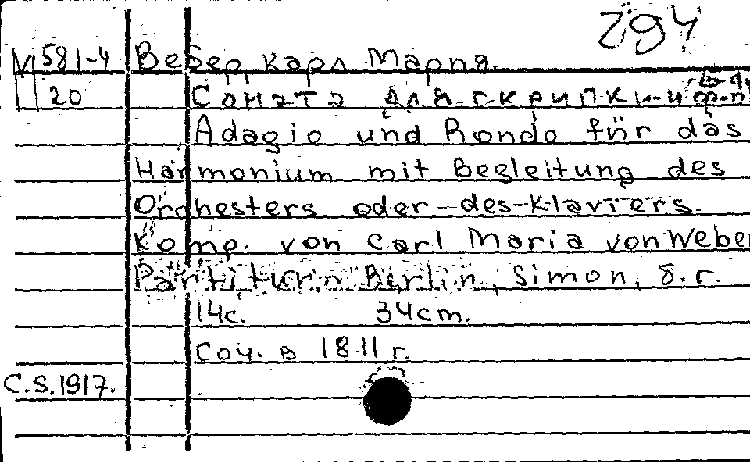 294
М 581-4 Вебер, Карл Мария.
20 Соната для скрипки и ф-п
Adagio und Rondo für das
Harmonium mit Begleitung des
Orchesters oder des Klaviers.
Komp. von Carl Maria von Weber
Partitura Berlin, Simon, б.г.
14с. 34cm.
Соч. в 1811 г.
C.S.1917.